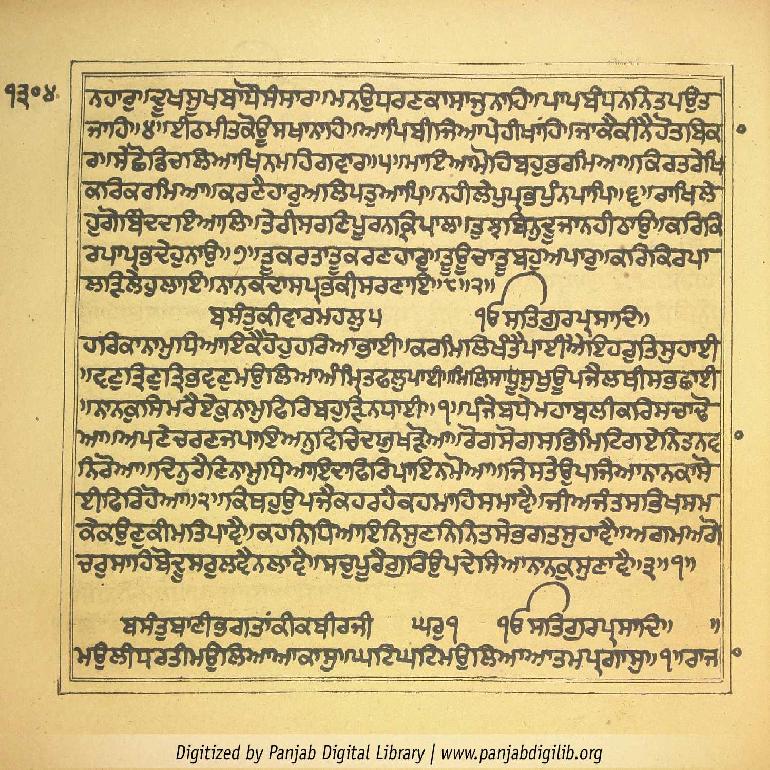 ੧੩੦੪
ਨਹਾਰੁ॥ਦੂਖਸੂਖਬਾਧੌਸੰਸਾਰਾ॥ਮਨਉਧਰਣਕਾਸਾਜੁਨਾਹਿ॥ਪਾਪਬੰਧਨਨਿਤਪਉਤ
ਜਾਹਿ॥੪॥ਈਠਮੀਤਕੋਊਸਖਾਨਾਹਿ॥ਆਪਿਬੀਜਿਆਪੇਹੀਖਾਂਹਿ॥ਜਾਕੈਕੀਨੈਹੋਤਬਿਕਾ
ਰ॥ਸੇਛੋਡਿਚਲਿਆਖਿਨਮਹਿਗਵਾਰ॥੫॥ਮਾਇਆਮੋਹਿਬਹੁਭਰਮਿਆ॥ਕਿਰਤਰੇਖਿ
ਕਰਿਕਰਮਿਆ॥ਕਰਣੈਹਾਰੁਅਲਿਪਤੁਆਪਿ॥ਨਹੀਲੇਪੁਪ੍ਰਭਪੁੰਨਪਾਪਿ॥੬॥ਰਾਖਿਲੇ
ਹੁਗੋਬਿੰਦਦਇਆਲ॥ਤੇਰੀਸਰਣਿਪੂਰਨਕ੍ਰਿਪਾਲ॥ਤੁਝਬਿਨੁਦੂਜਾਨਹੀਠਾਉ॥ਕਰਿਕਿ
ਰਪਾਪ੍ਰਭਦੇਹੁਨਾਉ॥੭॥ਤੂਕਰਤਾਤੂਕਰਣਹਾਰੁ॥ਤੂਊਚਾਤੂਬਹੁਅਪਾਰੁ॥ਕਰਿਕਿਰਪਾ
ਲੜਿਲੇਹੁਲਾਇ॥ਨਾਨਕਦਾਸਪ੍ਰਭਕੀਸਰਣਾਇ॥੮॥੨॥
ਬਸੰਤੁਕੀਵਾਰਮਹਲੁ੫ ੴਸਤਿਗੁਰਪ੍ਰਸਾਦਿ॥
ਹਰਿਕਾਨਾਮੁਧਿਆਇਕੈਹੋਹੁਹਰਿਆਭਾਈ॥ਕਰਮਿਲਿਖੰਤੈਪਾਈਐਇਹਰੁਤਿਸੁਹਾਈ
॥ਵਣੁਤ੍ਰਿਣੁਤ੍ਰਿਭਵਣੁਮਉਲਿਆਅੰਮ੍ਰਿਤਫਲੁਪਾਈ॥ਮਿਲਿਸਾਧੂਸੁਖੁਊਪਜੈਲਥੀਸਭਛਾਈ
॥ਨਾਨਕੁਸਿਮਰੈਏਕੁਨਾਮੁਫਿਰਿਬਹੁੜਿਨਧਾਈ॥੧॥ਪੰਜੇਬਧੇਮਹਾਬਲੀਕਰਿਸਚਾਢੋ
ਆ॥ਆਪਣੇਚਰਣਜਪਾਇਅਨੁਵਿਚਿਦਯੁਖੜੋਆ॥ਰੋਗਸੋਗਸਭਿਮਿਟਿਗਏਨਿਤਨਵਾ
ਨਿਰੋਆ॥ਦਿਨੁਰੈਣਿਨਾਮੁਧਿਆਇਦਾਫਿਰਿਪਾਇਨਮੋਆ॥ਜਿਸਤੇਉਪਜਿਆਨਾਨਕਾਸੋ
ਈਫਿਰਿਹੋਆ॥੨॥ਕਿਥਹੁਉਪਜੈਕਹਰਹੈਕਹਮਾਹਿਸਮਾਵੈ॥ਜੀਅਜੰਤਸਭਿਖਸਮ
ਕੇਕਉਣੁਕੀਮਤਿਪਾਵੈ॥ਕਹਨਿਧਿਆਇਨਿਸੁਣਨਿਨਿਤਸੇਭਗਤਸੁਹਾਵੈ॥ਅਗਮਅਗੋ
ਚਰੁਸਾਹਿਬੋਦੂਸਰੁਲਵੈਨਲਾਵੈ॥ਸਚੁਪੂਰੈਗੁਰਿਉਪਦੇਸਿਆਨਾਨਕੁਸੁਣਾਵੈ॥੩॥੧॥
ਬਸੰਤੁਬਾਣੀਭਗਤਾਂਕੀਕਬੀਰਜੀ ਘਰੁ੧ ੴਸਤਿਗੁਰਪ੍ਰਸਾਦਿ॥ ॥
ਮਉਲੀਧਰਤੀਮਉਲਿਆਆਕਾਸੁ॥ਘਟਿਘਟਿਮਉਲਿਆਆਤਮਪ੍ਰਗਾਸੁ॥੧॥ਰਾਜਾ
Digitized by Panjab Digital Library | www.panjabdigilib.org